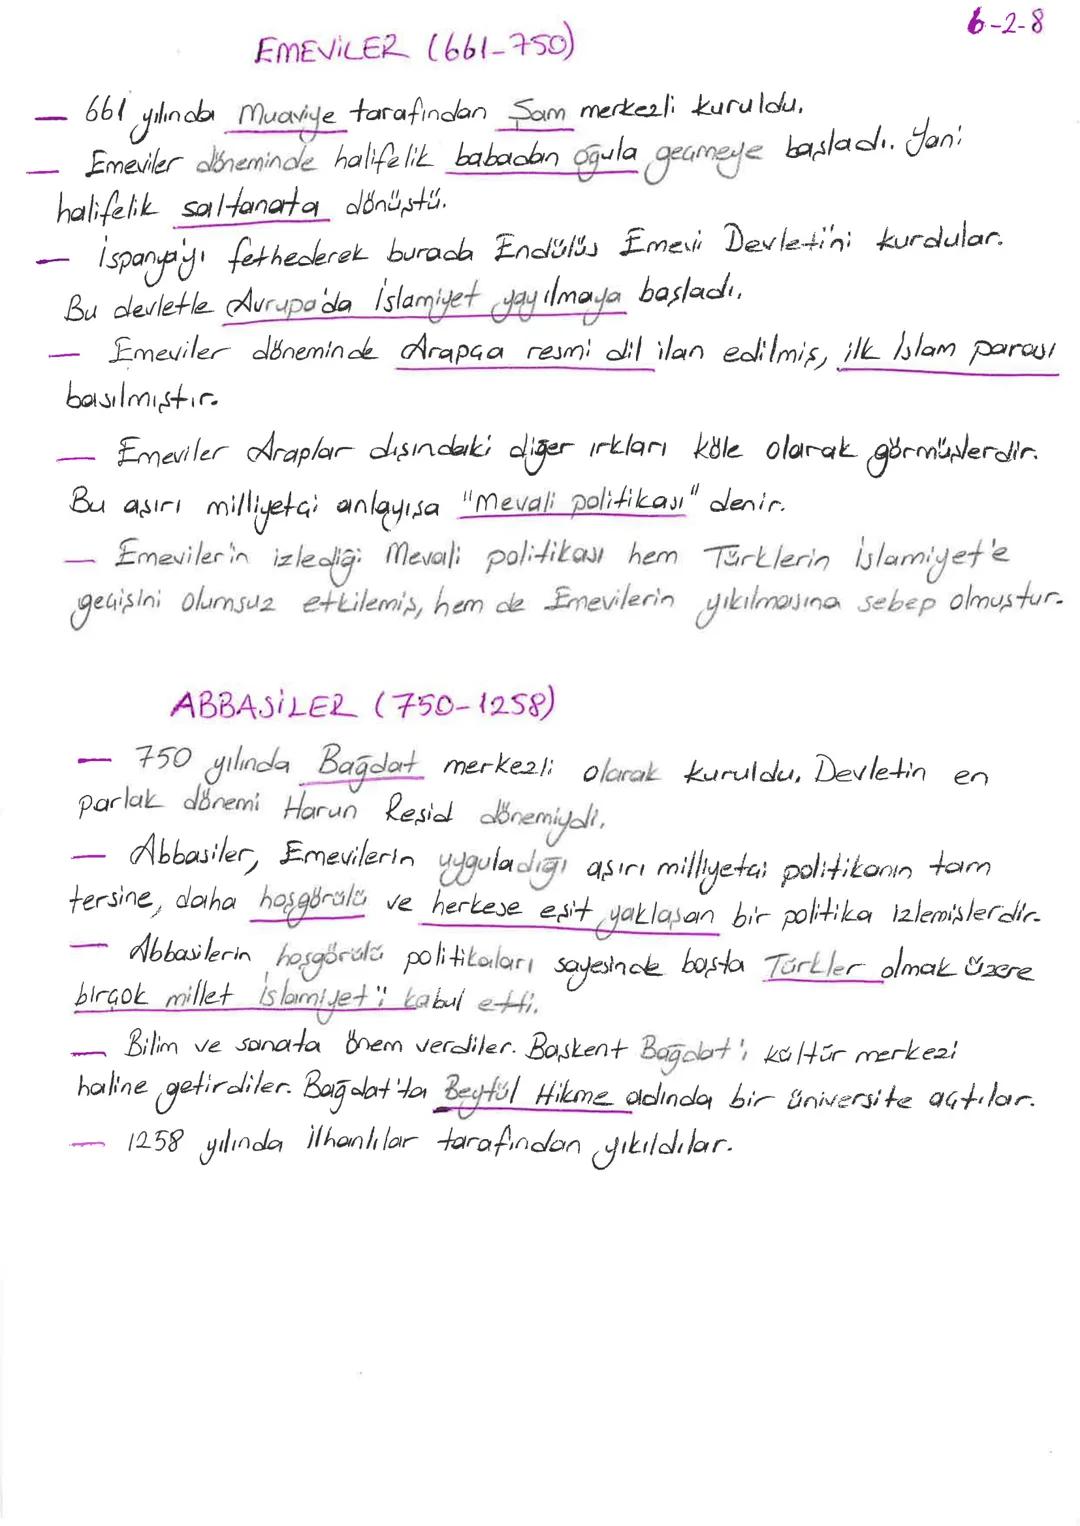 6-2-8
EMEVİLER (661-750)
— 661 yılında Muaviye tarafından Şam merkezli kuruldu.
— Emeviler döneminde halifelik babadan oğula geçmeye başladı. Yani
halifelik saltanata dönüştü.
— İspanya'yı fethederek burada Endülüs Emevi Devleti'ni kurdular.
Bu devletle Avrupa'da İslamiyet yayılmaya başladı.
— Emeviler döneminde Arapça resmi dil ilan edilmiş, ilk İslam parası
basılmıştır.
— Emeviler Araplar dışındaki diğer ırkları köle olarak görmüşlerdir.
Bu aşırı milliyetçi anlayışa "Mevali politikası" denir.
— Emeviler'in izlediği Mevali politikası hem Türklerin İslamiyet'e
geçişini olumsuz etkilemiş, hem de Emevilerin yıkılmasına sebep olmuştur.
ABBASİLER (750-1258)
— 750 yılında Bağdat merkezli olarak kuruldu. Devletin en
parlak dönemi Harun Reşid dönemiydi.
— Abbasiler, Emevilerin uyguladığı aşırı milliyetçi politikanın tam
tersine, daha hoşgörülü ve herkese eşit yaklaşan bir politika izlemişlerdir.
— Abbasilerin hoşgörülü politikaları sayesinde başta Türkler olmak üzere
birçok millet İslamiyet'i kabul etti.
— Bilim ve sanata önem verdiler. Başkent Bağdat'ı kültür merkezi
haline getirdiler. Bağdat'ta Beytül Hikme adında bir üniversite açtılar.
— 1258 yılında İlhanlılar tarafından yıkıldılar.